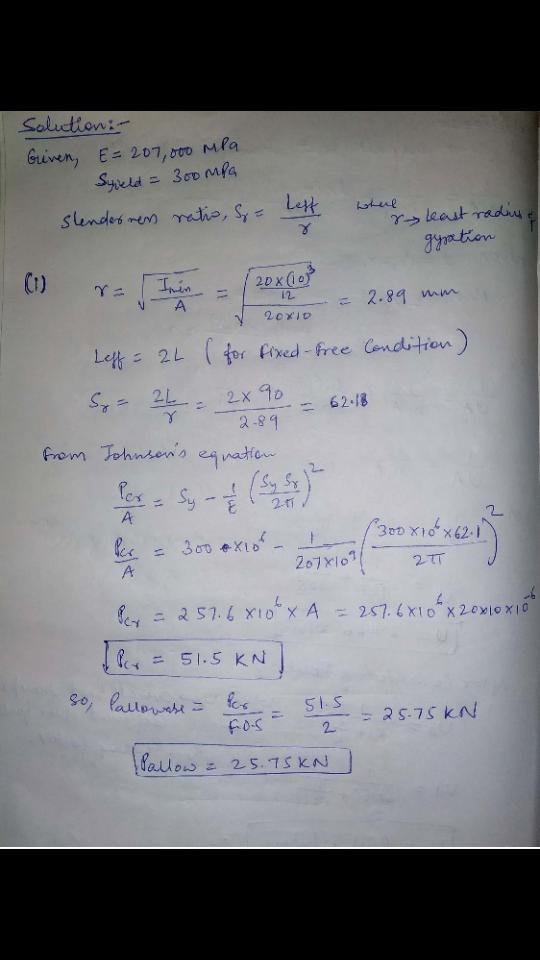 Solution:-
Given, E = 207,000 MPa
Syield = 300 MPa
Slenderness ratio, Sr = Leff / r where r → least radius of gyration
(1) r = √(Imin / A) = √((20×(10)³ / 12) / (20×10)) = 2.89 mm
Leff = 2L (for fixed-free Condition)
Sr = 2L / r = 2×90 / 2.89 = 62.18
From Johnson's equation
Pcr / A = Sy - 1/E (Sy Sr / 2π)²
Pcr / A = 300 ×10⁶ - 1 / 207×10³ (300×10⁶×62.1 / 2π)²
Pcr = 257.6 ×10⁶ × A = 257.6×10⁶×20×10×10⁻⁶
Pcr = 51.5 KN
So, Pallowable = Pcr / F.O.S = 51.5 / 2 = 25.75 KN
Pallow = 25.75 KN